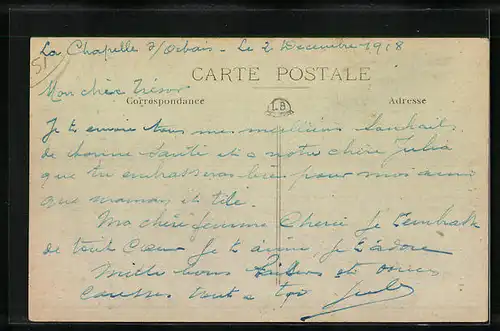 La Chapelle s/ Orbais - Le 2 Decembre 1918
51
CARTE POSTALE
Mon chèr trésor
Correspondance
LB
Adresse
Je t'envoie tous mes meilleurs souhaits
de bonne santé et a notre chère Julia
que tu embrasseras bien pour moi ainsi
que maman et titi.
Ma chère femme Cherie je t'embrasse
de tout Cœur je t'aime, je t'adore
Mille bons baisers et douces
caresses tout a toi Jules